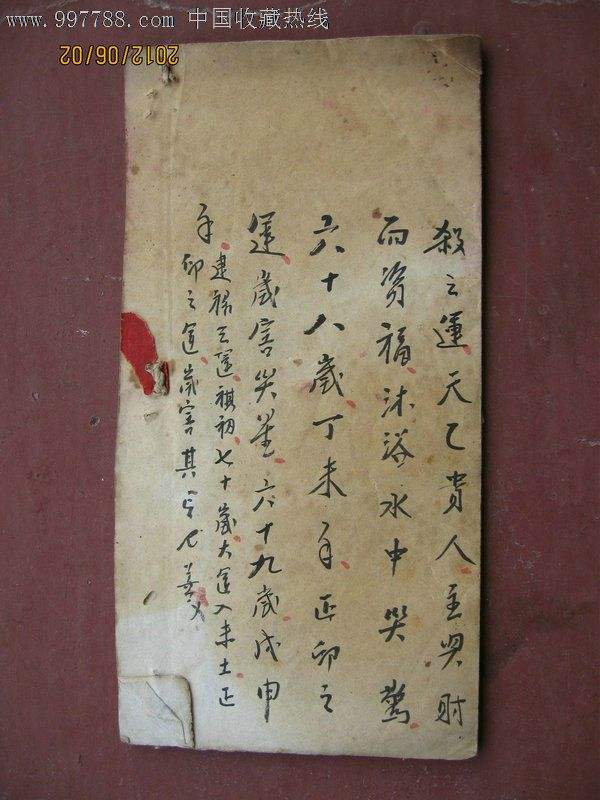 www.997788.com 中国收藏热线
2012/06/02
殺之運天乙貴人主哭財
而資福沐浴水中哭驚
六十八歲丁未年正印之
運歲害哭星六十九歲戊申
年建祿之運祺初七十歲大運入未土正
印之運歲害其